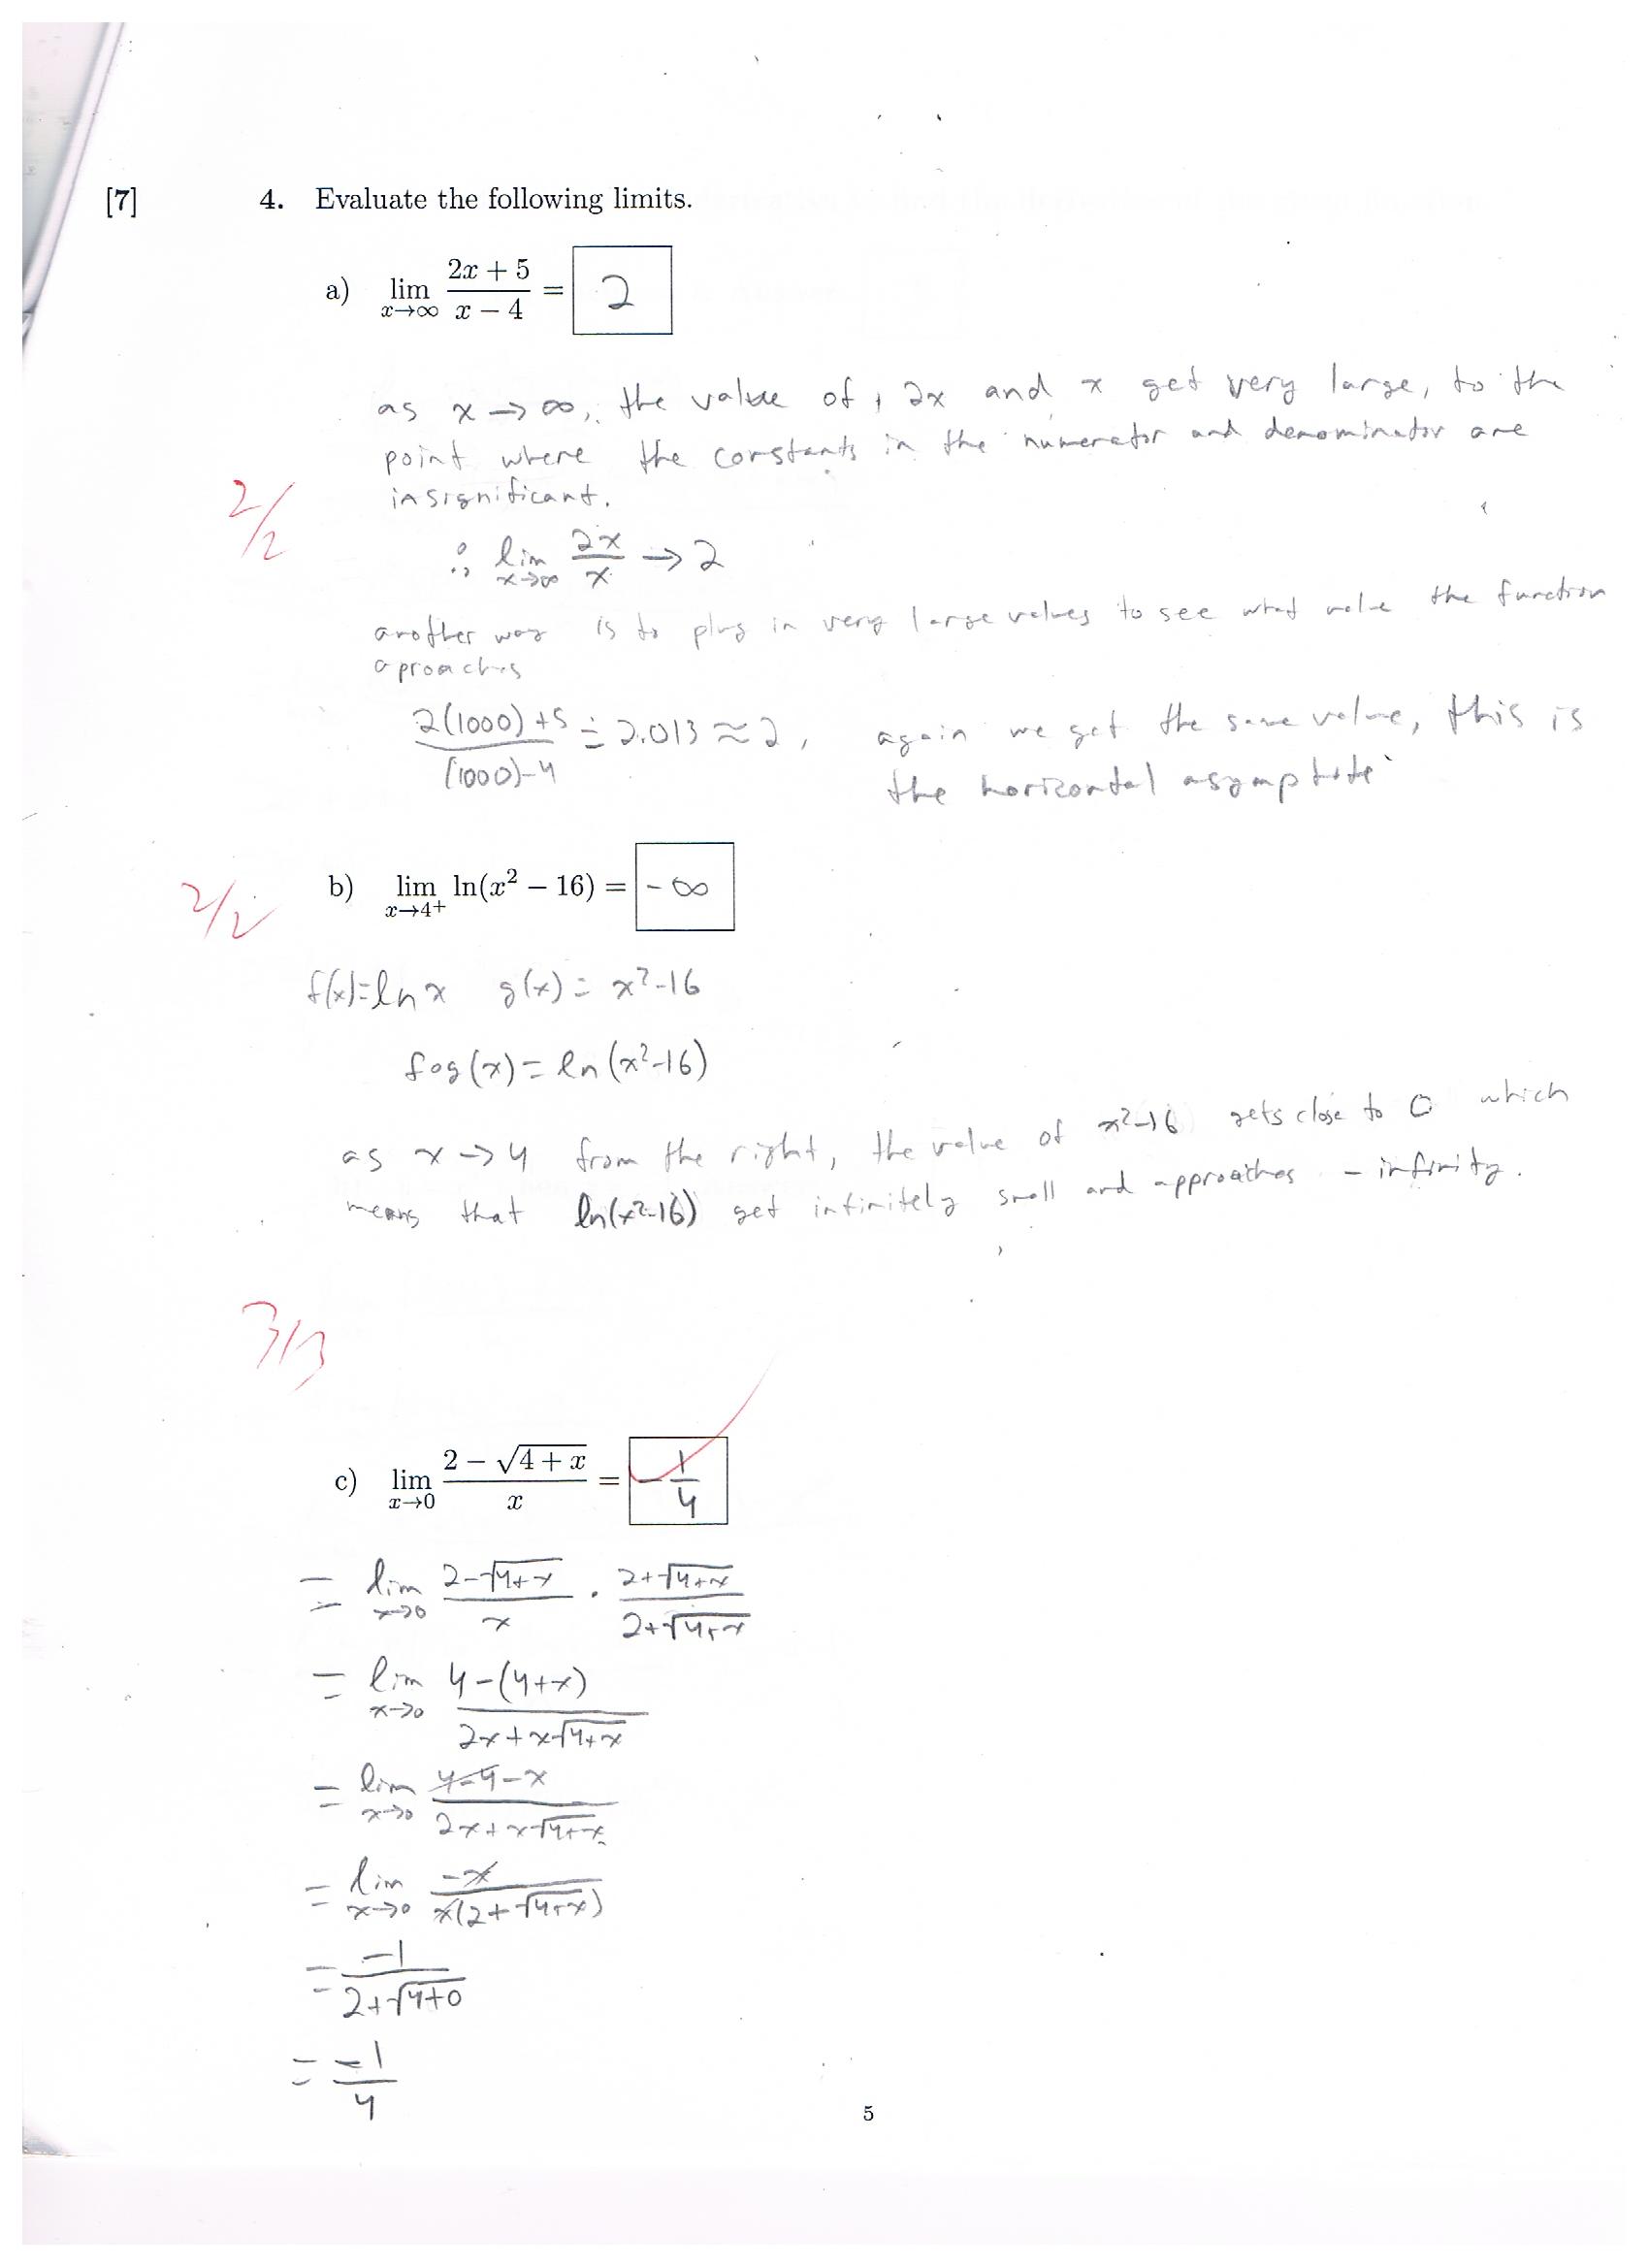 [7] 4. Evaluate the following limits.
a) lim x→∞ (2x + 5)/(x − 4) = 2
as x → ∞, the value of, 2x and x get very large, to the
point where the constants in the numerator and denominator are
insignificant.
2/2
∴ lim x→∞ 2x/x → 2
another way is to plug in very large values to see what value the function
aproaches
(2(1000)+5)/((1000)-4) = 2.013 ≈ 2, again we get the same value, this is
the horizontal asymptote
2/2 b) lim x→4+ ln(x² − 16) = -∞
f(x)=ln x g(x) = x²-16
fog(x) = ln(x²-16)
as x → 4 from the right, the value of x²-16 gets close to 0 which
means that ln(x²-16) get infinitely small and approaches - infinity.
3/3
c) lim x→0 (2 − √(4 + x))/x = -1/4
= lim x→0 (2-√(4+x))/x · (2+√(4+x))/(2+√(4+x))
= lim x→0 (4-(4+x))/(2x+x√(4+x))
= lim x→0 (4-4-x)/(2x+x√(4+x))
= lim x→0 -x/(x(2+√(4+x)))
= -1/(2+√(4+0))
= -1/4
5